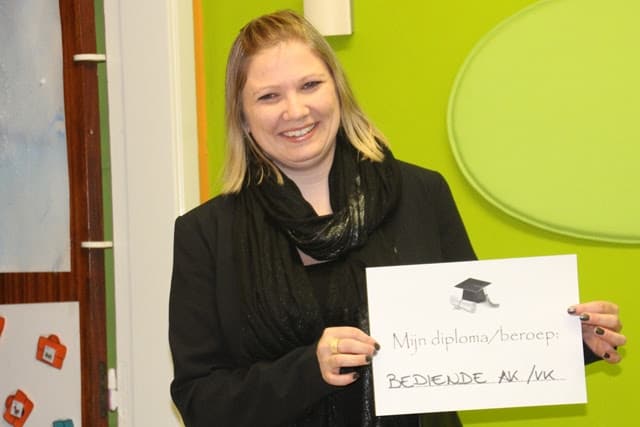 Mijn diploma/beroep:
BEDIENDE AK/VK